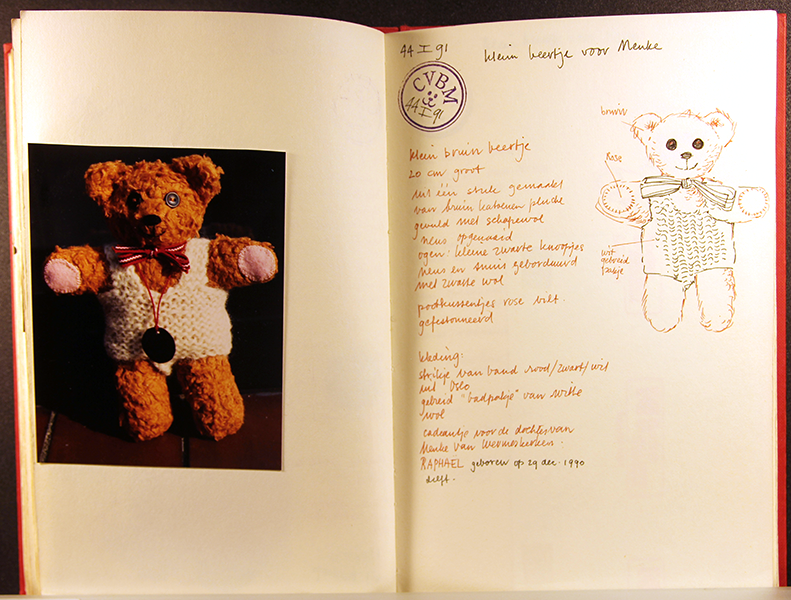 44 I 91
klein beertje voor Menke
CVBM
44 I 91
klein bruin beertje
20 cm groot
uit één stuk gemaakt
van bruin katoenen pluche
gevuld met schapewol
neus opgenaaid
ogen: kleine zwarte knoopjes
neus en snuit geborduurd
met zwarte wol
pootkussentjes rose vilt.
gefestonneerd
kleding:
strikje van band rood/zwart/wit
uit Oslo
gebreid "badpakje" van witte
wol
cadeautje voor de dochter van
Menke van Wermeskerken.
RAPHAEL geboren op 29 dec. 1990
Delft.
bruin
Rose
wit
gebreid
pakje